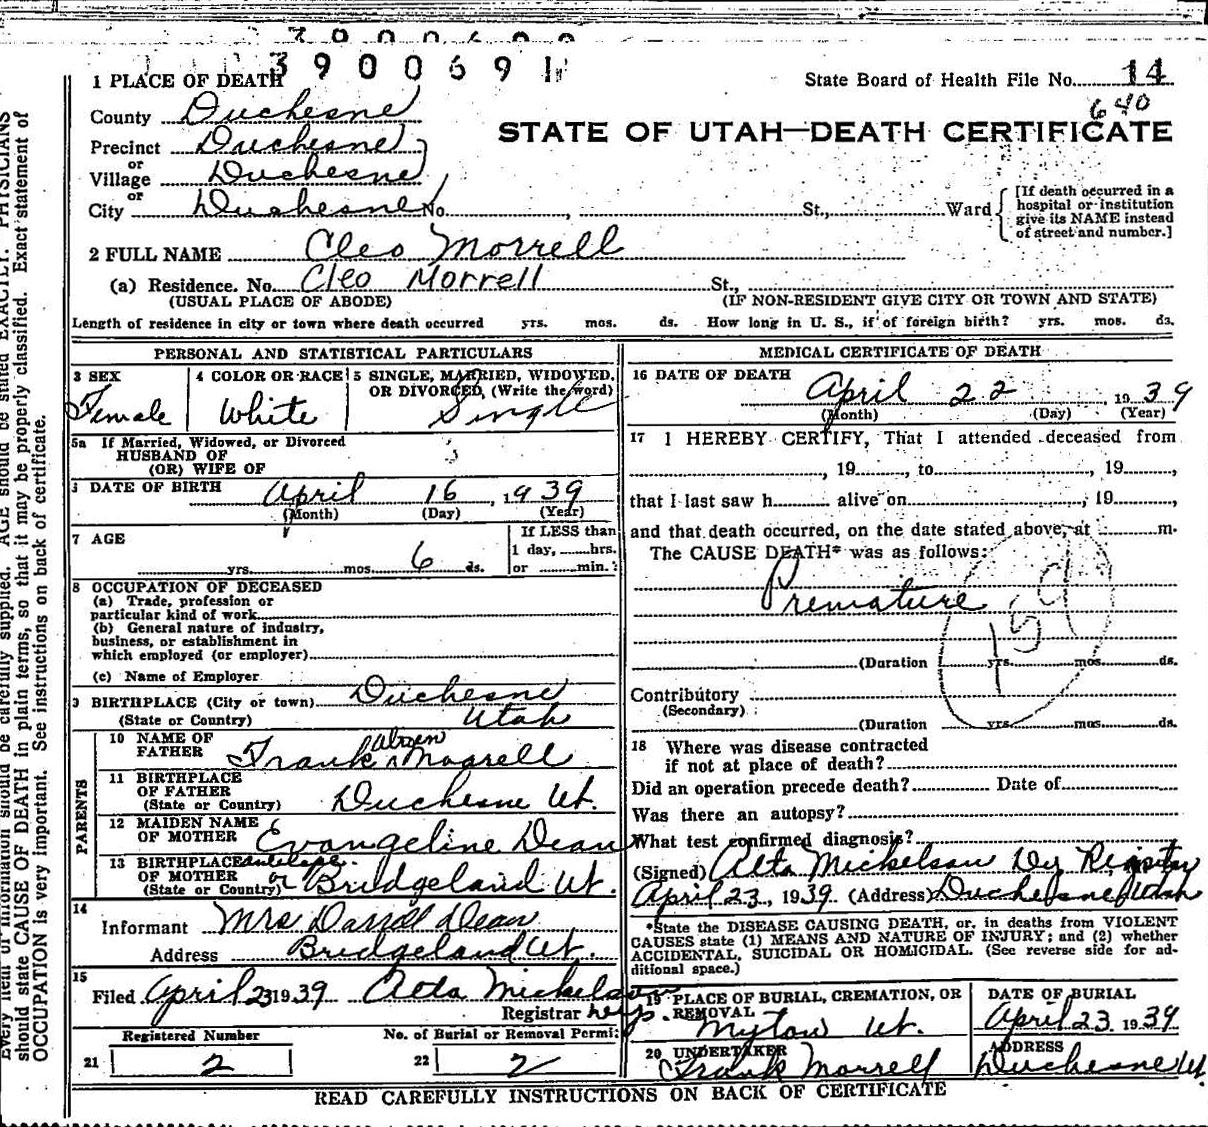 3900691
1 PLACE OF DEATH
State Board of Health File No. 14
640
County Duchesne
STATE OF UTAH—DEATH CERTIFICATE
Precinct Duchesne
or
Village Duchesne
or
City Duchesne No. , St., Ward
[If death occurred in a
hospital or institution
give its NAME instead
of street and number.]
2 FULL NAME Cleo Morrell
(a) Residence. No. Cleo Morrell St.,
(USUAL PLACE OF ABODE) (IF NON-RESIDENT GIVE CITY OR TOWN AND STATE)
Length of residence in city or town where death occurred yrs. mos. ds. How long in U. S., if of foreign birth? yrs. mos. ds.
PERSONAL AND STATISTICAL PARTICULARS
3 SEX
Female
4 COLOR OR RACE
White
5 SINGLE, MARRIED, WIDOWED,
OR DIVORCED, (Write the word)
Single
5a If Married, Widowed, or Divorced
HUSBAND OF
(OR) WIFE OF
DATE OF BIRTH April 16, 1939
(Month) (Day) (Year)
7 AGE
yrs. mos 6 ds.
If LESS than
1 day, hrs.
or min.
8 OCCUPATION OF DECEASED
(a) Trade, profession or
particular kind of work
(b) General nature of industry,
business, or establishment in
which employed (or employer)
(c) Name of Employer
9 BIRTHPLACE (City or town) Duchesne
(State or Country) Utah
PARENTS
10 NAME OF
FATHER Frank Morrell
11 BIRTHPLACE
OF FATHER
(State or Country) Duchesne Ut.
12 MAIDEN NAME
OF MOTHER Evangeline Dean
13 BIRTHPLACE antelope.
OF MOTHER
(State or Country) or Bridgeland Ut.
14
Informant Mrs Darrell Dean
Address Bridgeland Ut.
15
Filed April 23 1939 Alta Mickelson
Registrar
Registered Number
21 2
No. of Burial or Removal Permit
22 2
MEDICAL CERTIFICATE OF DEATH
16 DATE OF DEATH
April 22 1939
(Month) (Day) (Year)
17 I HEREBY CERTIFY, That I attended deceased from
, 19 , to , 19 ,
that I last saw h alive on , 19 ,
and that death occurred, on the date stated above, at m.
The CAUSE DEATH* was as follows:
Premature
159
(Duration yrs. mos. ds.
Contributory
(Secondary)
(Duration yrs. mos. ds.
18 Where was disease contracted
if not at place of death?
Did an operation precede death? Date of
Was there an autopsy?
What test confirmed diagnosis?
(Signed) Alta Mickelson Dy Registrar
April 23, 1939. (Address) Duchesne Utah
*State the DISEASE CAUSING DEATH, or, in deaths from VIOLENT
CAUSES state (1) MEANS AND NATURE OF INJURY; and (2) whether
ACCIDENTAL, SUICIDAL OR HOMICIDAL. (See reverse side for ad-
ditional space.)
19 PLACE OF BURIAL, CREMATION, OR
REMOVAL
Myton Ut.
DATE OF BURIAL
April 23 1939
20 UNDERTAKER
Frank Morrell
ADDRESS
Duchesne Ut
READ CAREFULLY INSTRUCTIONS ON BACK OF CERTIFICATE
Every item of information should be carefully supplied. AGE should be stated EXACTLY. PHYSICIANS
should state CAUSE OF DEATH in plain terms, so that it may be properly classified. Exact statement of
OCCUPATION is very important. See instructions on back of certificate.